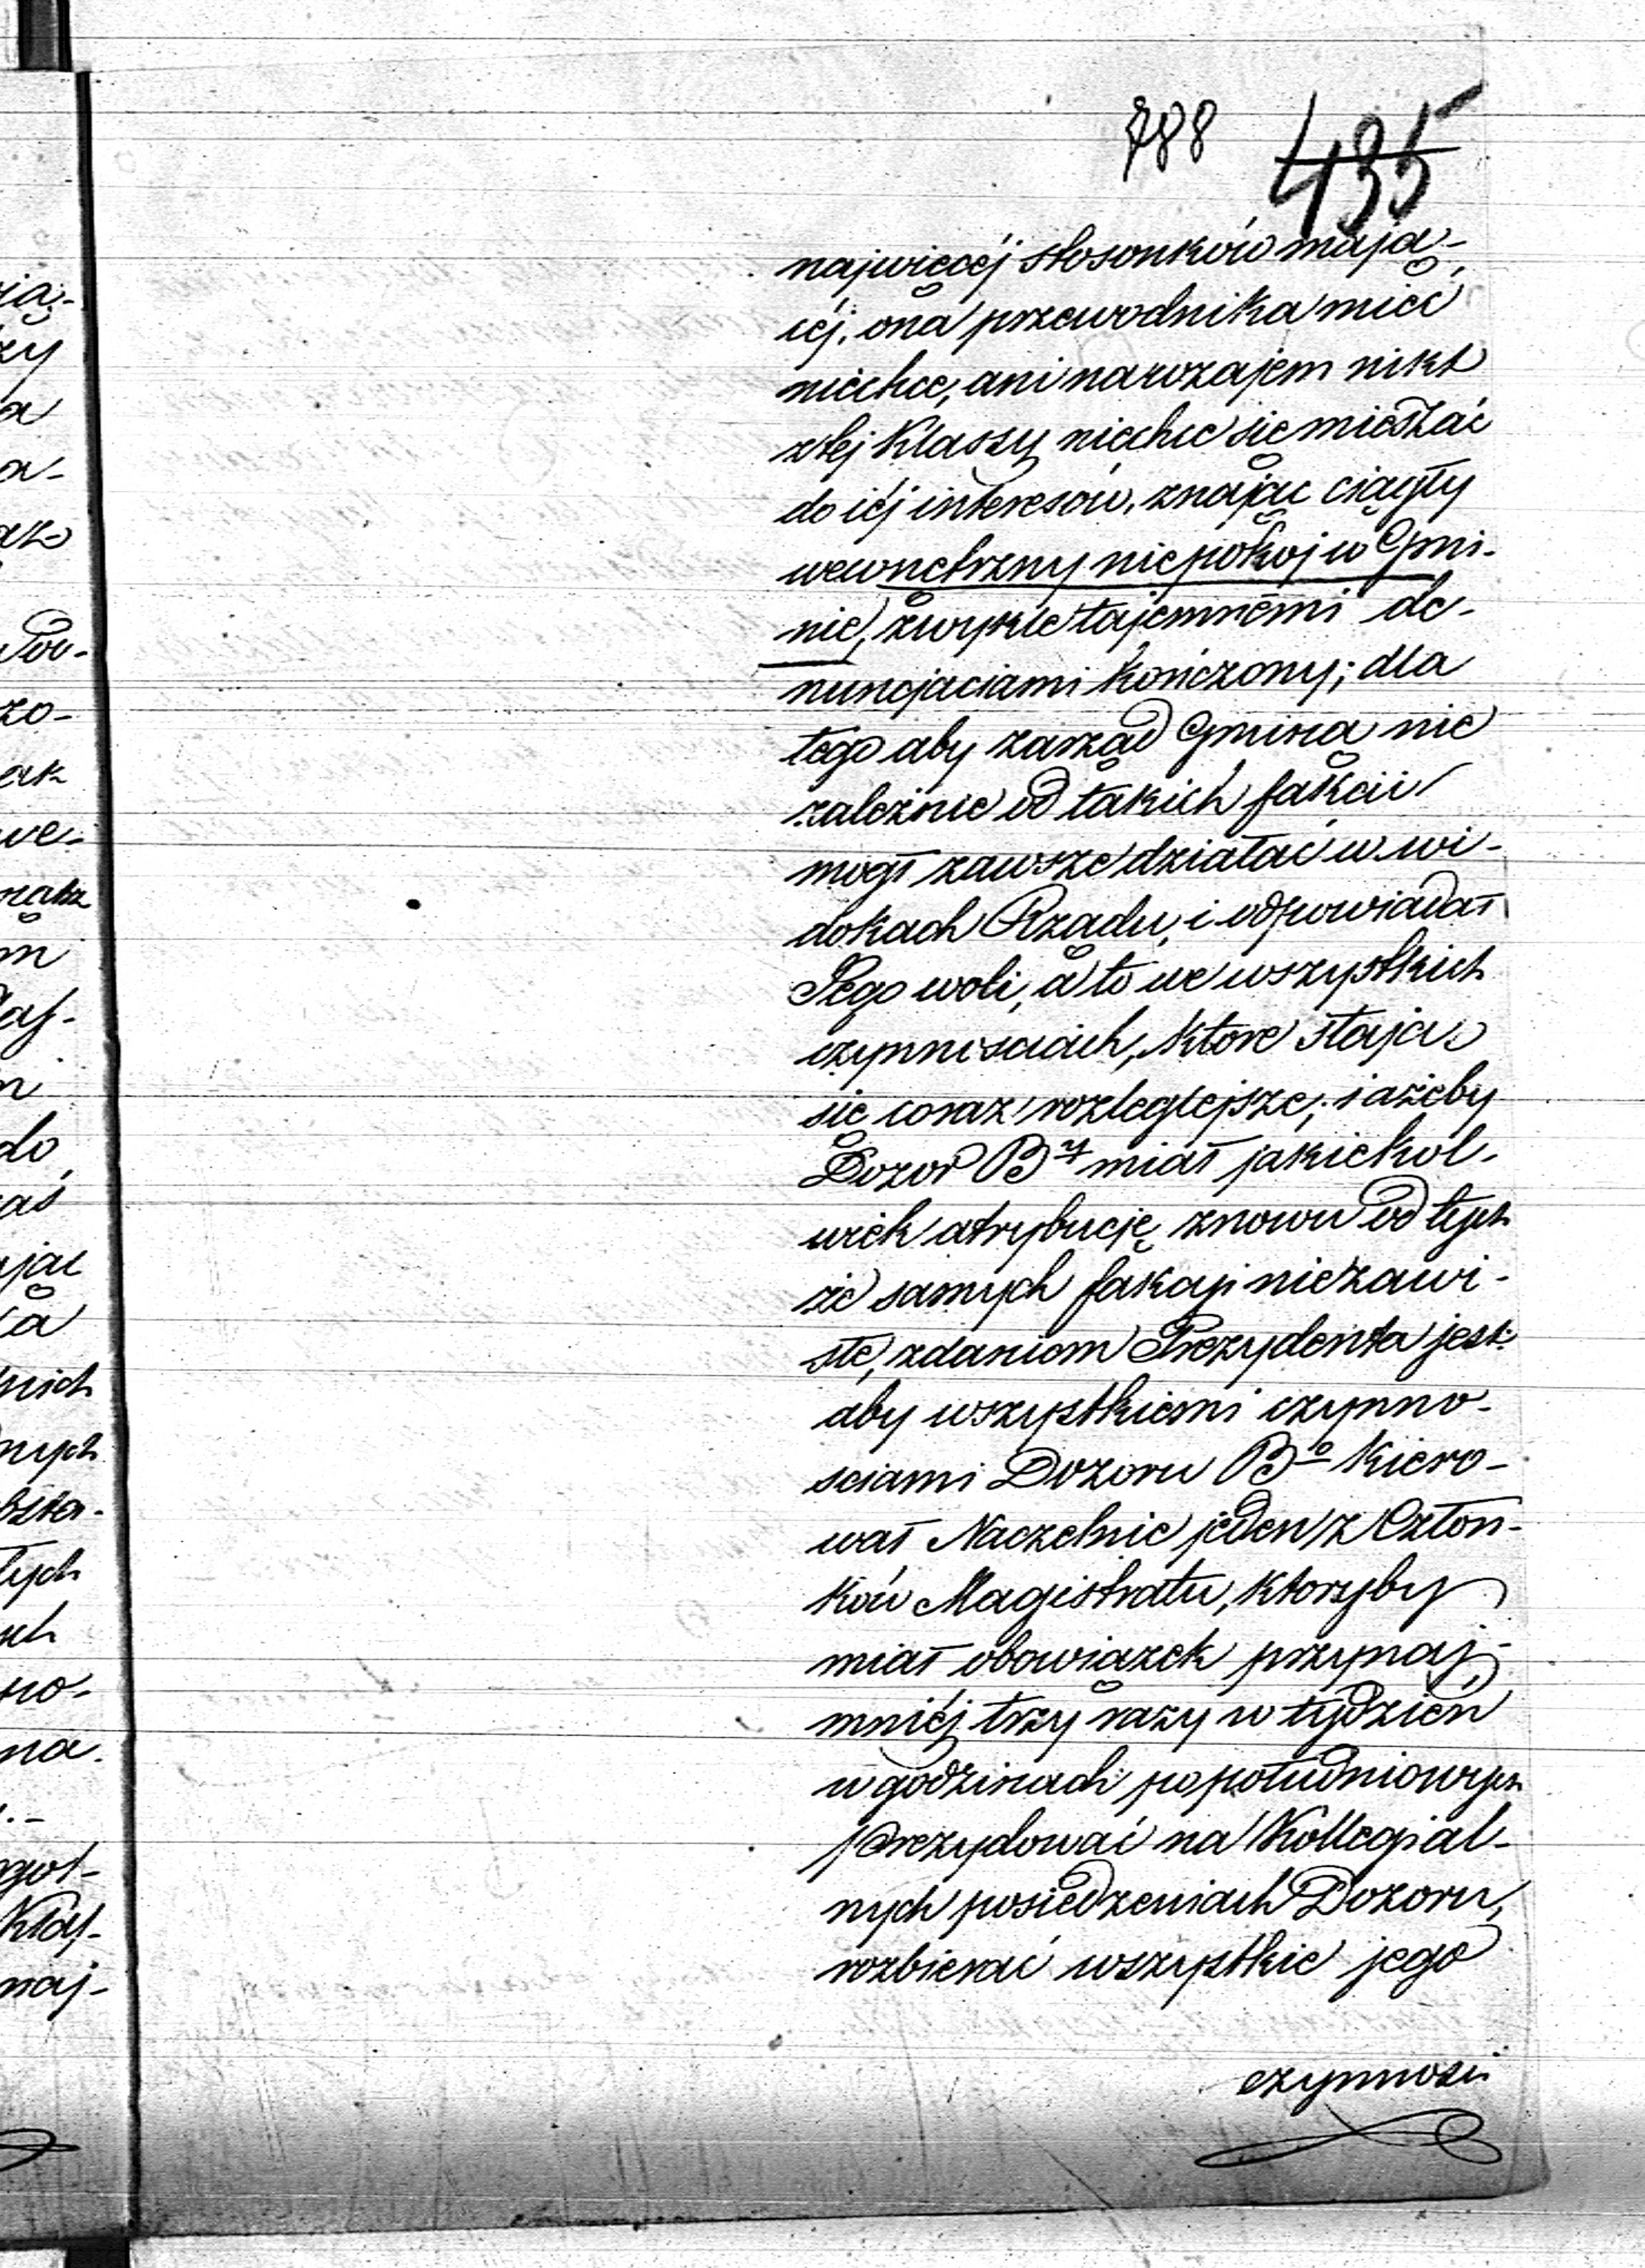 788 435
najwięcéj stosonków mają-
céj, ona przewodnika mieć
niechce, ani nawzajem nikt
z téj Klassy niechce się mieszać
do icéj interesów, znając ciągły
wewnętrzny niepokoj w Gmi-
nie, zwykle tajemnémi de-
nuncjaciami kończony; dla
tego aby zarząd Gminą nie
zależnie od takich fakcii
mogł zawsze działać w wi-
dokach Rządu, i odpowiadał
Jego woli, a to we wszystkich
czynnosciach, ktore stają
się coraz rozleglejsze, i ażeby
Dozor By miał jakiekol-
wiek atrybucję znowu od tych
że samych fakcji niezawi-
słe, zdaniem Prezydenta jest:
aby wszystkiemi czynno-
sciami Dozoru Bo kiero-
wał Naczelnie jeden z Człon-
ków Magistratu, ktoryby
miał obowiązek przynaj-
mniéj trzy razy w tydzień
w godzinach popołudniowych
prezydować na Kollegial-
nych posiedzeniach Dozoru,
rozbierać wszystkie jego
czynnosci